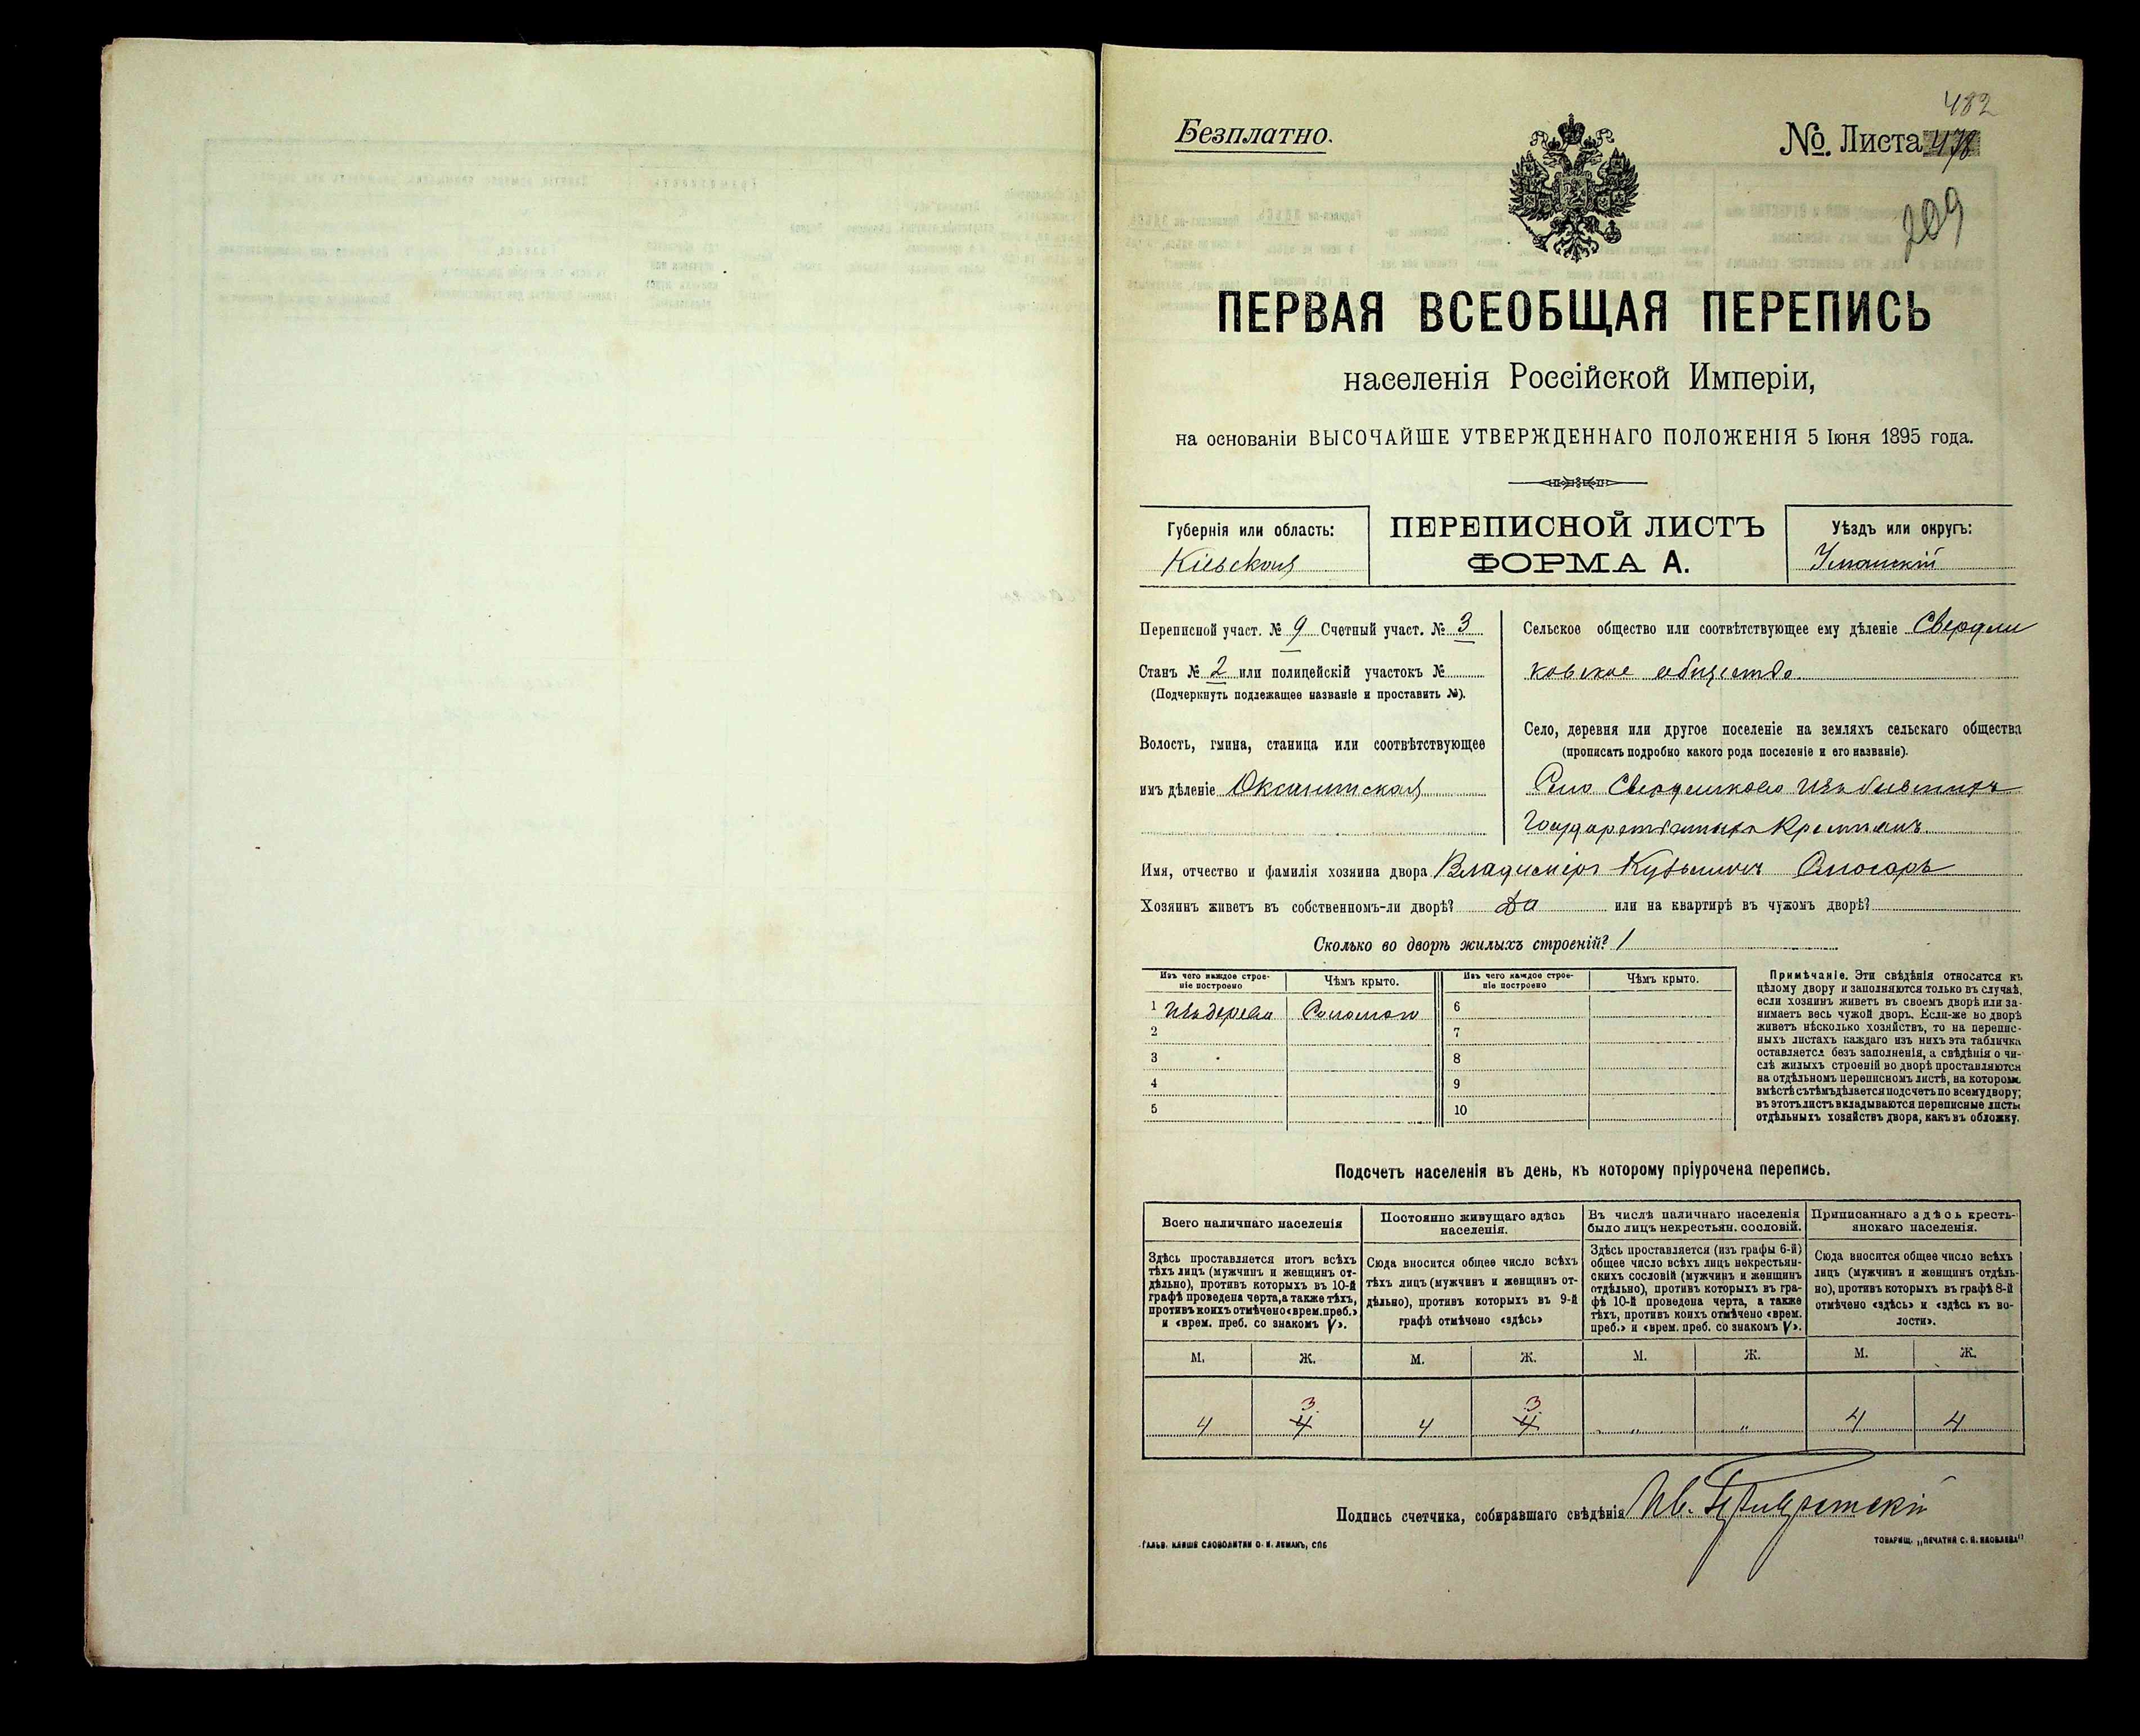 482
Безплатно.
№. Листа 478
209
ПЕРВАЯ ВСЕОБЩАЯ ПЕРЕПИСЬ
населенія Россійской Имперіи,
на основаніи ВЫСОЧАЙШЕ УТВЕРЖДЕННАГО ПОЛОЖЕНІЯ 5 Іюня 1895 года.
Губернія или область:
Кіевская
ПЕРЕПИСНОЙ ЛИСТЪ
ФОРМА А.
Уѣздъ или округъ:
Уманскій
Переписной участ. № 9 Счетный участ. № 3
Станъ № 2 или полицейскій участокъ №
(Подчеркнуть подлежащее названіе и проставить №).
Волость, гмина, станица или соотвѣтствующее
имъ дѣленіе Оксанинская
Сельское общество или соотвѣтствующее ему дѣленіе Свердли
ковское общество
Село, деревня или другое поселеніе на земляхъ сельскаго общества
(прописать подробно какого рода поселеніе и его названіе).
Село Свердликово изъ бывшихъ
Государственныхъ Крестьянъ
Имя, отчество и фамилія хозяина двора Владиміръ Кузьмичъ Слюсаръ
Хозяинъ живетъ въ собственномъ-ли дворѣ? Да или на квартирѣ въ чужомъ дворѣ?
Сколько во дворѣ жилыхъ строеній? 1
Изъ чего каждое строе-
ніе построено
Чѣмъ крыто.
Изъ чего каждое строе-
ніе построено
Чѣмъ крыто.
1 Изъ дерева Соломою 6
2 7
3 8
4 9
5 10
Примѣчаніе. Эти свѣдѣнія относятся къ
цѣлому двору и заполняются только въ случаѣ,
если хозяинъ живетъ въ своемъ дворѣ или за-
нимаетъ весь чужой дворъ. Если-же во дворѣ
живетъ нѣсколько хозяйствъ, то на перепис-
ныхъ листахъ каждаго изъ нихъ эта табличка
оставляется безъ заполненія, а свѣдѣнія о чи-
слѣ жилыхъ строеній во дворѣ проставляются
на отдѣльномъ переписномъ листѣ, на которомъ
вмѣстѣ съ тѣмъ дѣлается подсчетъ по всему двору;
въ этотъ листъ вкладываются переписные листы
отдѣльныхъ хозяйствъ двора, какъ въ обложку.
Подсчетъ населенія въ день, къ которому пріурочена перепись.
Всего наличнаго населенія
Постоянно живущаго здѣсь
населенія.
Въ числѣ наличнаго населенія
было лицъ некрестьян. сословій.
Приписаннаго здѣсь кресть-
янскаго населенія.
Здѣсь проставляется итогъ всѣхъ
тѣхъ лицъ (мужчинъ и женщинъ от-
дѣльно), противъ которыхъ въ 10-й
графѣ проведена черта, а также тѣхъ,
противъ коихъ отмѣчено «врем. преб.»
и «врем. преб. со знакомъ V».
Сюда вносится общее число всѣхъ
тѣхъ лицъ (мужчинъ и женщинъ от-
дѣльно), противъ которыхъ въ 9-й
графѣ отмѣчено «здѣсь»
Здѣсь проставляется (изъ графы 6-й)
общее число всѣхъ лицъ некрестьян-
скихъ сословій (мужчинъ и женщинъ
отдѣльно), противъ которыхъ въ гра-
фѣ 10-й проведена черта, а также
тѣхъ, противъ коихъ отмѣчено «врем.
преб.» и «врем. преб. со знакомъ V».
Сюда вносится общее число всѣхъ
лицъ (мужчинъ и женщинъ отдѣль-
но), противъ которыхъ въ графѣ 8-й
отмѣчено «здѣсь» и «здѣсь къ во-
лости».
М. Ж. М. Ж. М. Ж. М. Ж.
3 3
4 4 4 4 „ „ 4 4
Подпись счетчика, собиравшаго свѣдѣнія Ив.
ГАЛЬВ. КЛИШЕ СЛОВОЛИТНИ О. И. ЛЕМАНЪ, СПБ
ТОВАРИЩ. „ПЕЧАТНЯ С. П. ЯКОВЛЕВА“